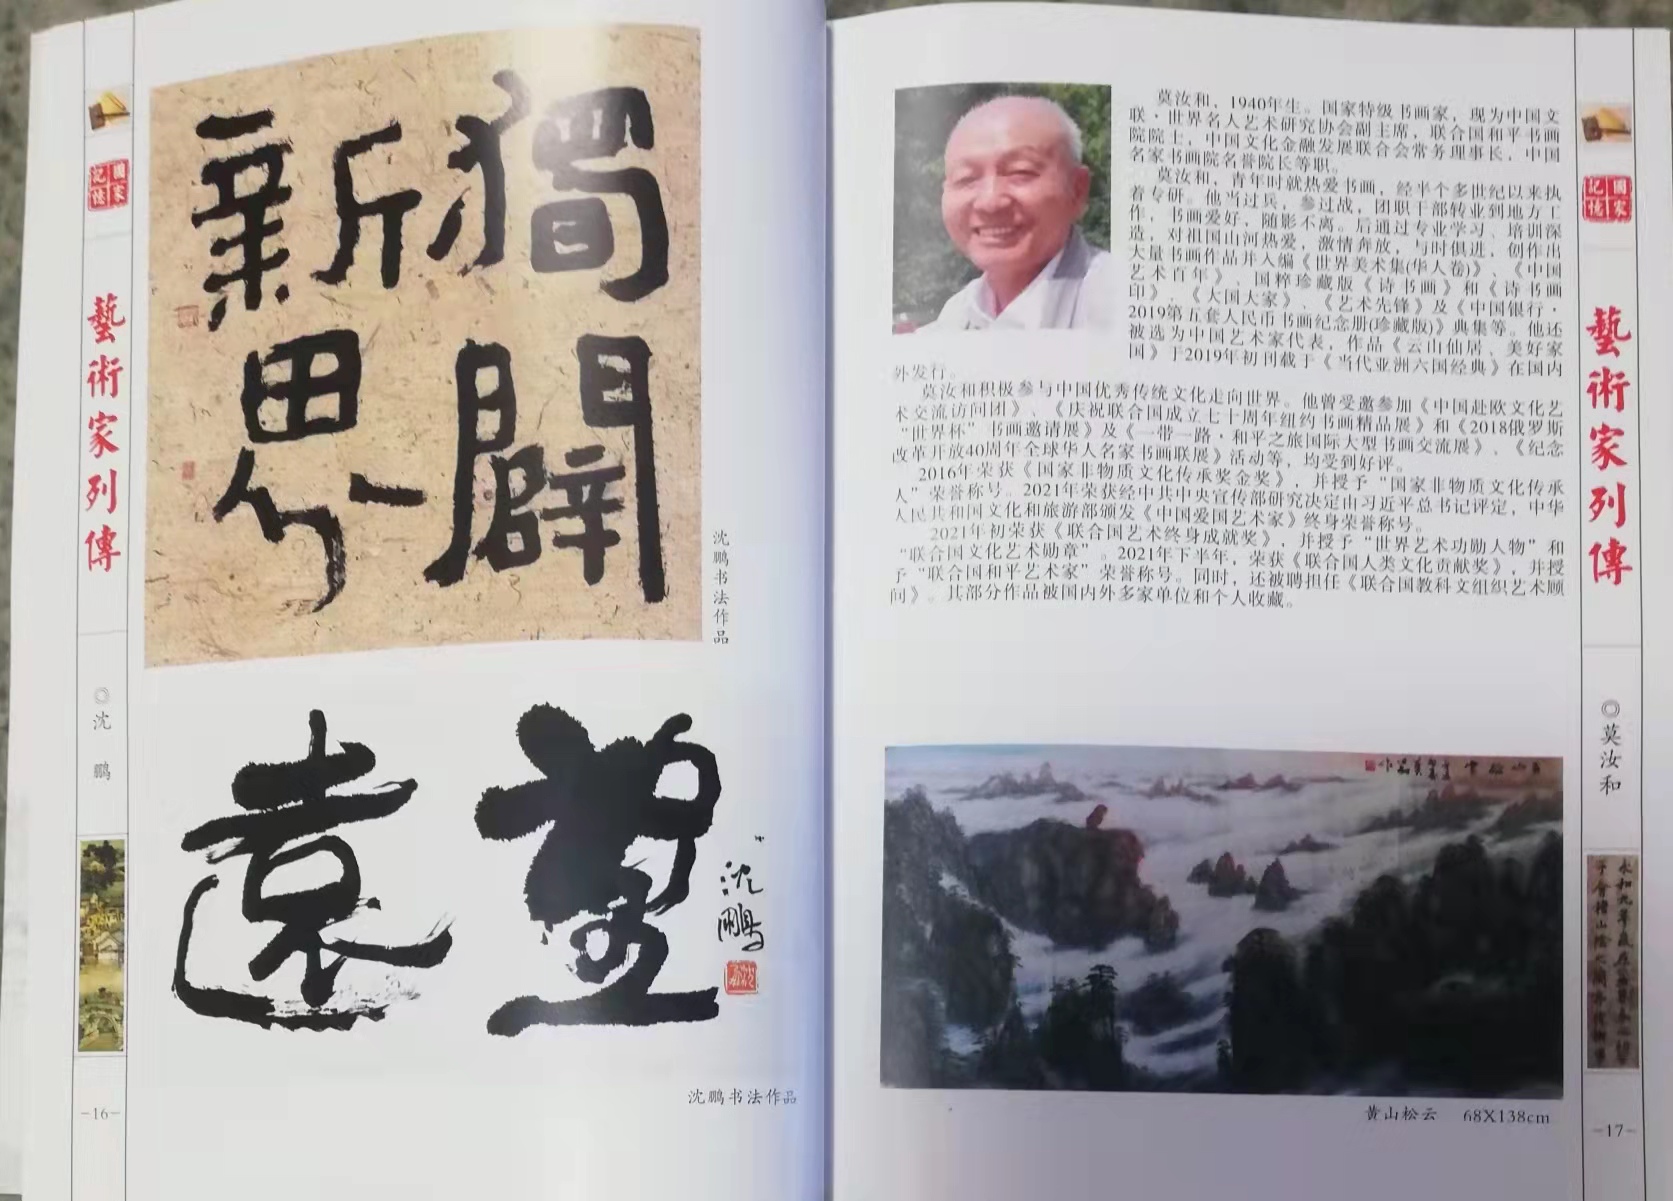 國家
記憶
藝術家列傳
◎沈鹏
-16-
獨闢
新界
沈鹏书法作品
望遠
沈鹏
沈鹏书法作品
莫汝和，1940年生。国家特级书画家，现为中国文
联·世界名人艺术研究协会副主席，联合国和平书画
院院士，中国文化金融发展联合会常务理事长，中国
名家书画院名誉院长等职。
莫汝和，青年时就热爱书画，经半个多世纪以来执
着专研。他当过兵，参过战，团职干部转业到地方工
作，书画爱好，随影不离。后通过专业学习、培训深
造，对祖国山河热爱，激情奔放，与时俱进，创作出
大量书画作品并入编《世界美术集(华人卷)》、《中国
艺术百年》、国粹珍藏版《诗书画》和《诗书画
印》、《大国大家》、《艺术先锋》及《中国银行·
2019第五套人民币书画纪念册(珍藏版)》典集等。他还
被选为中国艺术家代表，作品《云山仙居、美好家
国》于2019年初刊载于《当代亚洲六国经典》在国内
外发行。
莫汝和积极参与中国优秀传统文化走向世界。他曾受邀参加《中国赴欧文化艺
术交流访问团》、《庆祝联合国成立七十周年纽约书画精品展》和《2018俄罗斯
“世界杯”书画邀请展》及《一带一路·和平之旅国际大型书画交流展》、《纪念
改革开放40周年全球华人名家书画联展》活动等，均受到好评。
2016年荣获《国家非物质文化传承奖金奖》，并授予“国家非物质文化传承
人”荣誉称号。2021年荣获经中共中央宣传部研究决定由习近平总书记评定，中华
人民共和国文化和旅游部颁发《中国爱国艺术家》终身荣誉称号。
2021年初荣获《联合国艺术终身成就奖》，并授予“世界艺术功勋人物”和
“联合国文化艺术勋章”。2021年下半年，荣获《联合国人类文化贡献奖》，并授
予“联合国和平艺术家”荣誉称号。同时，还被聘担任《联合国教科文组织艺术顾
问》。其部分作品被国内外多家单位和个人收藏。
黄山松云 68X138cm
國家
記憶
藝術家列傳
◎莫汝和
永和九年歲在
于會稽山陰之蘭亭
-17-